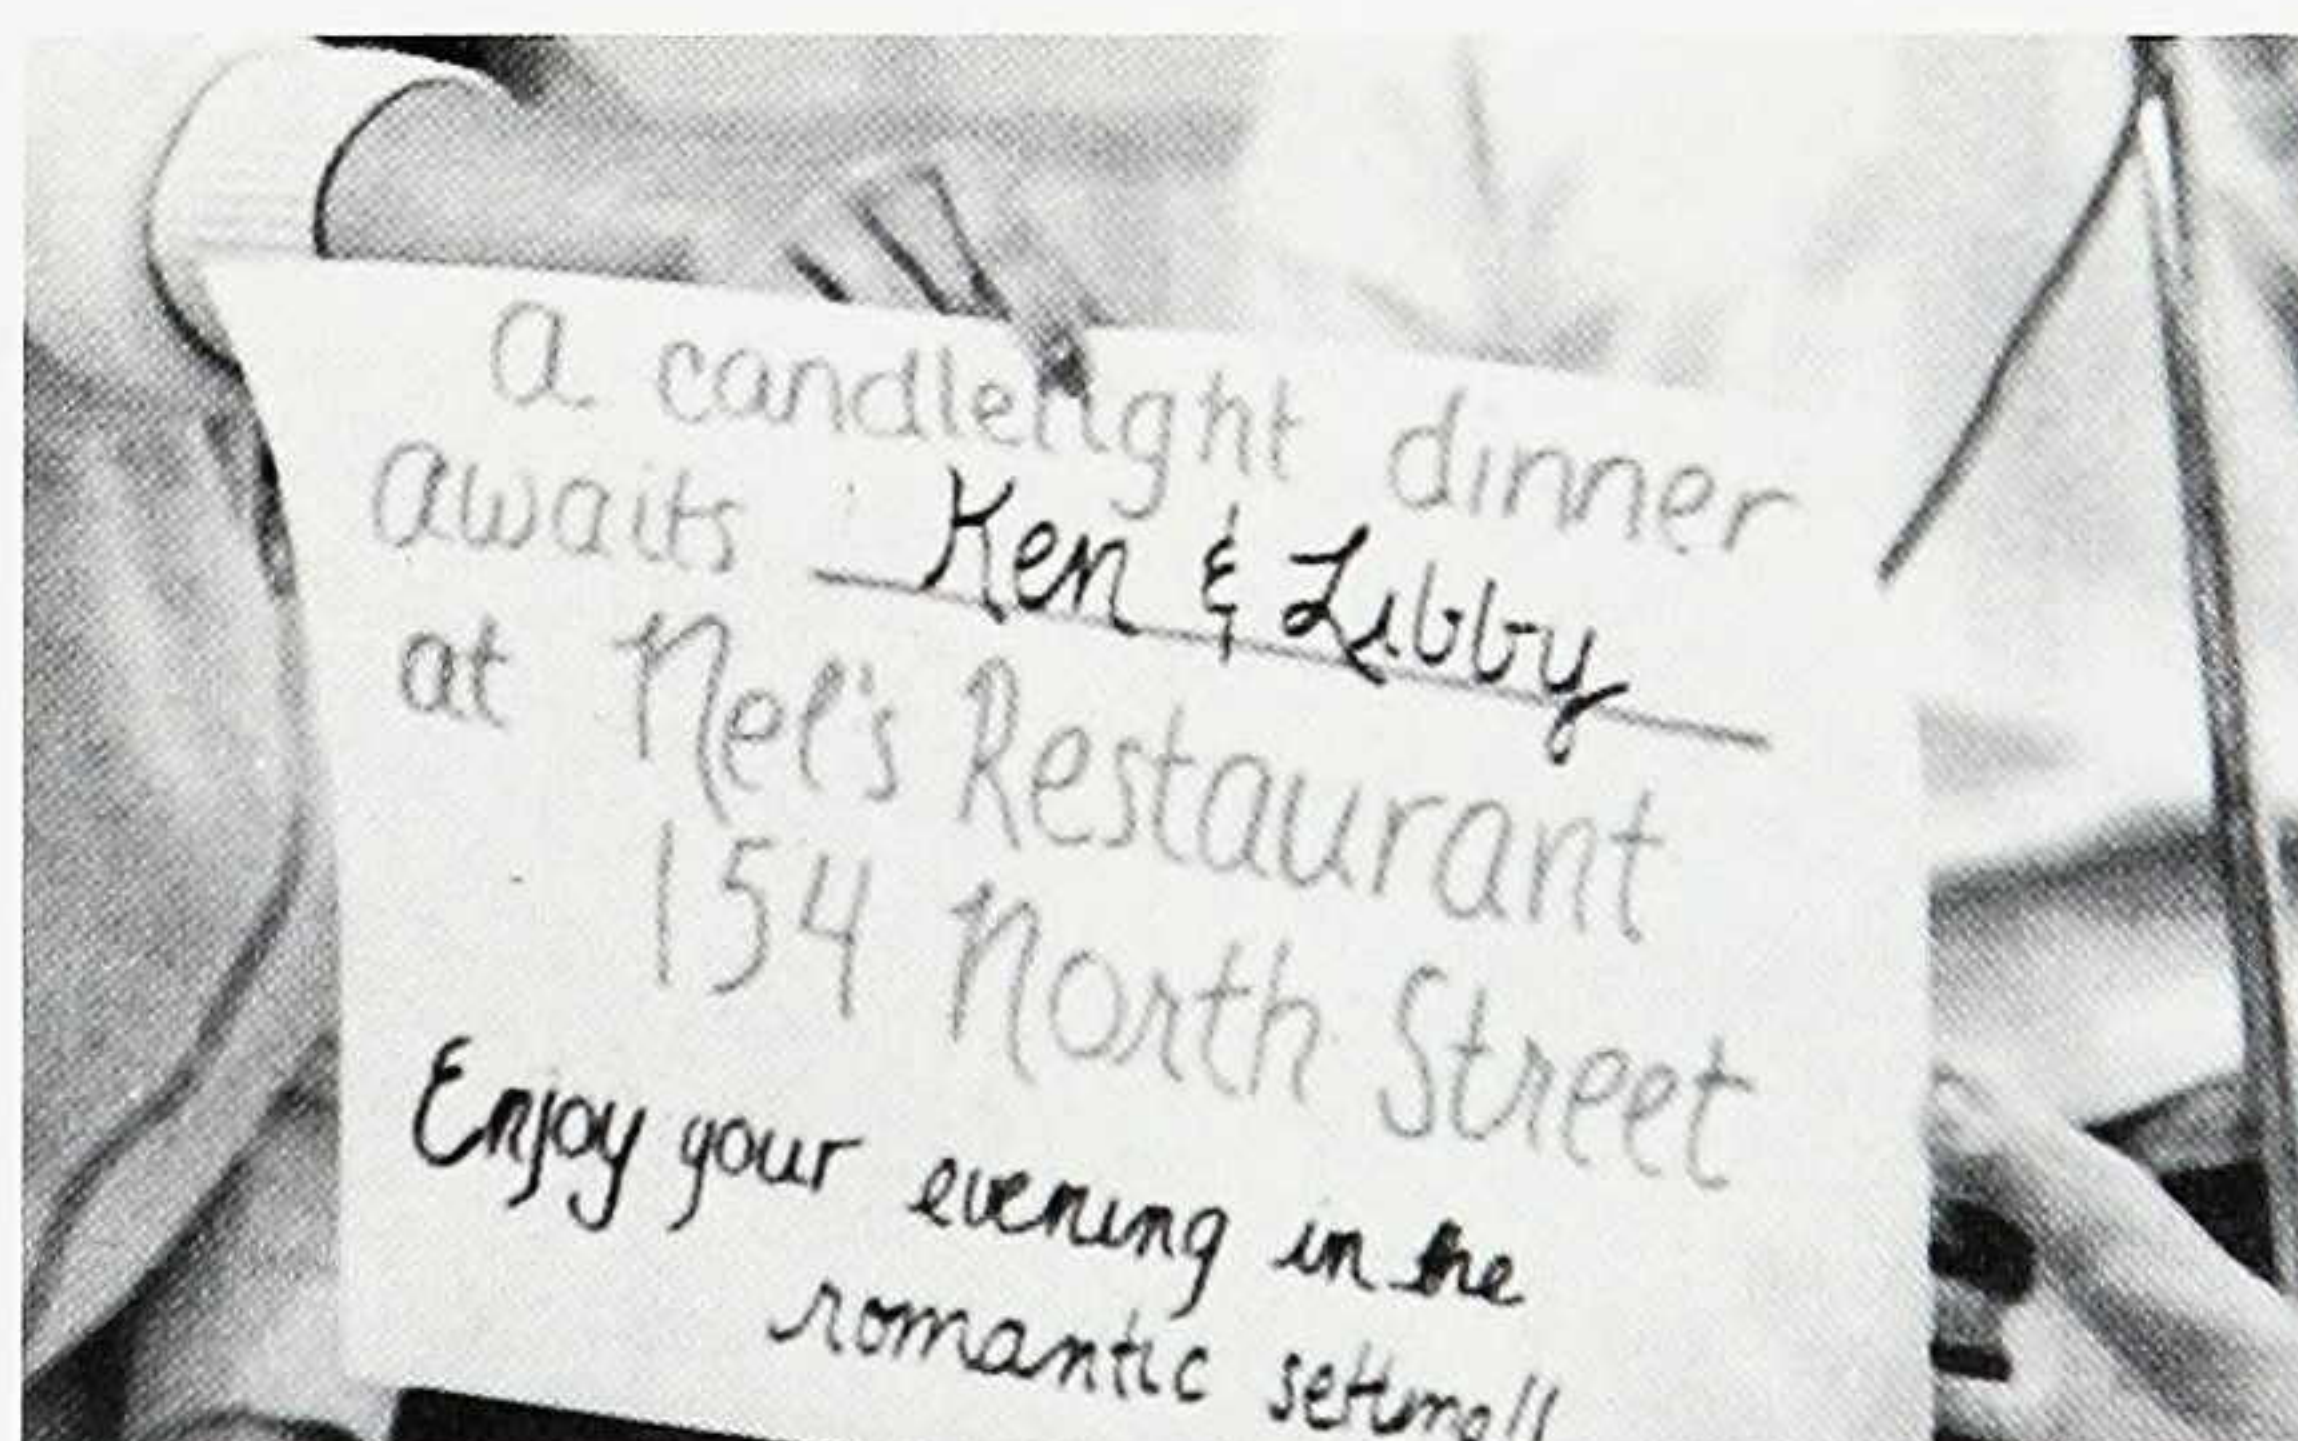 a candlelight dinner
awaits Ken & Libby
at Nel's Restaurant
154 North Street
Enjoy your evening in the
romantic setting!!